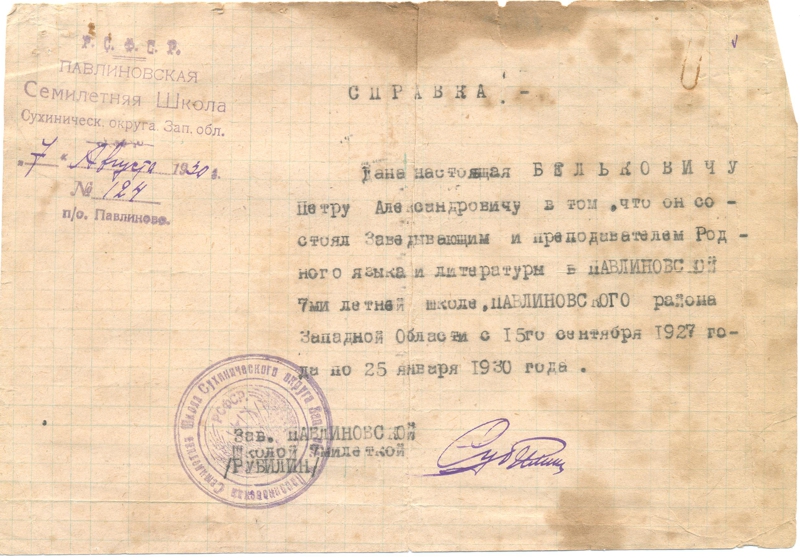 Р. С. Ф. С. Р.
ПАВЛИНОВСКАЯ
Семилетняя Школа
Сухиническ. округа Зап. обл.
„7“ Августа 1930 г.
№ 124
п/о. Павлиново.
СПРАВКА.-
Дана настоящая БЕЛЬКОВИЧУ
Петру Александровичу в том ,что он со-
стоял Заведывающим и преподавателем Род-
ного языка и литературы в ПАВЛИНОВСКОЙ
7ми летней школе,ПАВЛИНОВСКОГО района
Западной Области с 15го сентября 1927 го-
да по 25 января 1930 года .
Павлиновская Семилетняя Школа Сухинического округа Зап.
РСФСР
Зав. ПАВЛИНОВСКОЙ
Школой 7милеткой
/РУБИЛИН/